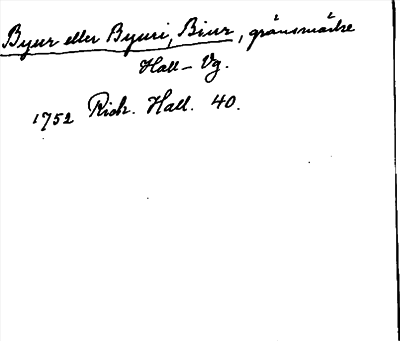 Byur eller Byuri, Biur, gränsmärke
Hall – Vg.
1752 Rich. Hall. 40.